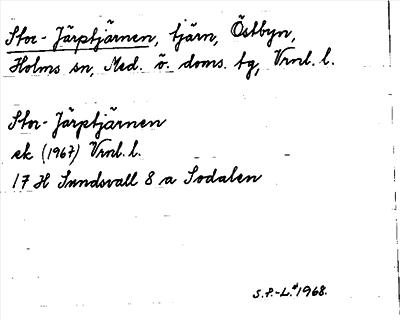 Stor-Järptjärnen, tjärn, Östbyn,
Holms sn, Med. ö. doms. tg, Vrnl. l.
Stor-Järptjärnen
ek (1967) Vrnl. l.
17 H Sundsvall 8 a Sodalen
S.P.-L. 1968.